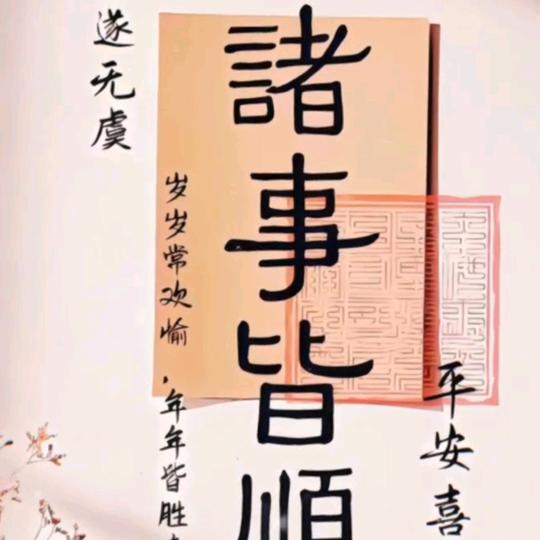 平安喜
諸事皆順
遂无虞
岁岁常欢愉，年年皆胜